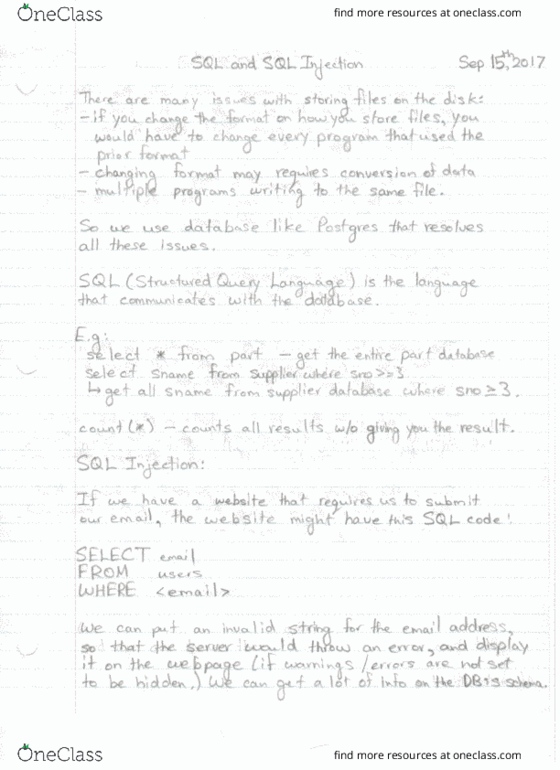 OneClass
find more resources at oneclass.com
SQL and SQL Injection Sep 15th, 2017
There are many issues with storing files on the disk:
- if you change the format on how you store files, you
would have to change every program that used the
prior format
- changing format may requires conversion of data
- multiple programs writing to the same file.
So we use database like Postgres that resolves
all these issues.
SQL (Structured Query Language) is the language
that communicates with the database.
E.g:
select * from part - get the entire part database
select sname from supplier where sno >= 3
↳ get all sname from supplier database where sno ≥ 3.
count(*) - counts all results w/o giving you the result.
SQL Injection:
If we have a website that requires us to submit
our email, the website might have this SQL code:
SELECT email
FROM users
WHERE <email>
We can put an invalid string for the email address,
so that the server would throw an error, and display
it on the webpage (if warnings/errors are not set
to be hidden.) We can get a lot of info on the DB's schema.
OneClass
find more resources at oneclass.com